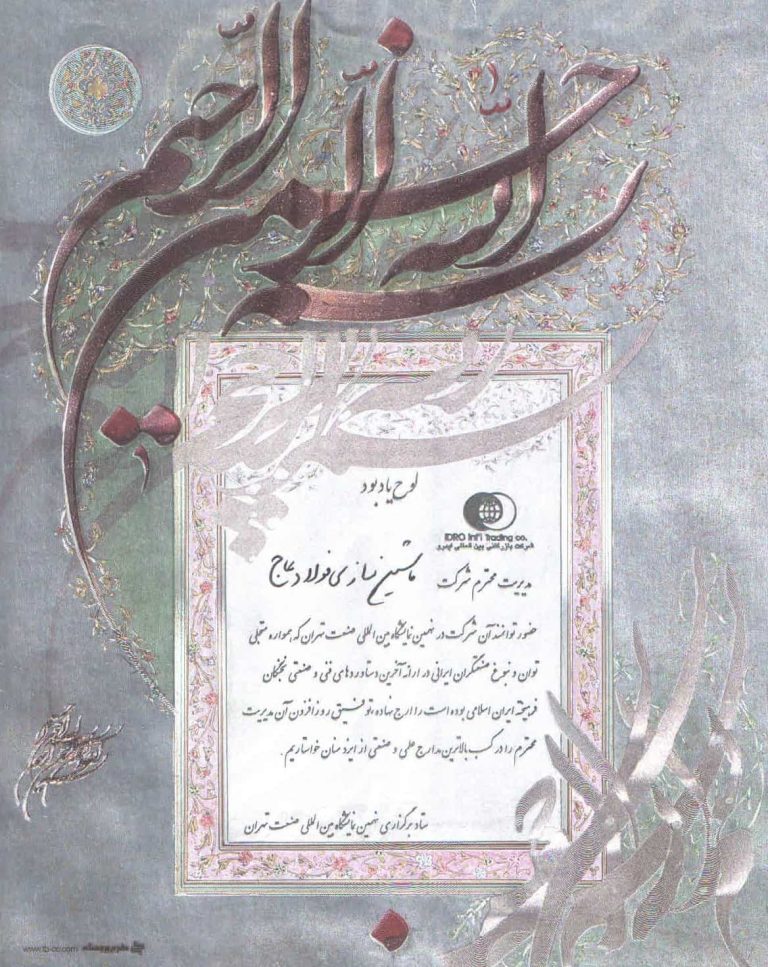 بسم الله الرحمن الرحیم
لوح یادبود
IDRO Int'l Trading co.
شرکت بازرگانی بین المللی ایدرو
مدیریت محترم شرکت ماشین سازی فولاد عاج
حضور توانمند آن شرکت در نهمین نمایشگاه بین المللی صنعت تهران که همواره متجلی
توان و نبوغ صنعتگران ایرانی در ارائه آخرین دستاوردهای فنی و صنعتی نخبگان
فرهیخته ایران اسلامی بوده است را ارج نهاده، توفیق روزافزون آن مدیریت
محترم را در کسب بالاترین مدارج علمی و صنعتی از ایزد منان خواستاریم.
ستاد برگزاری نهمین نمایشگاه بین المللی صنعت تهران